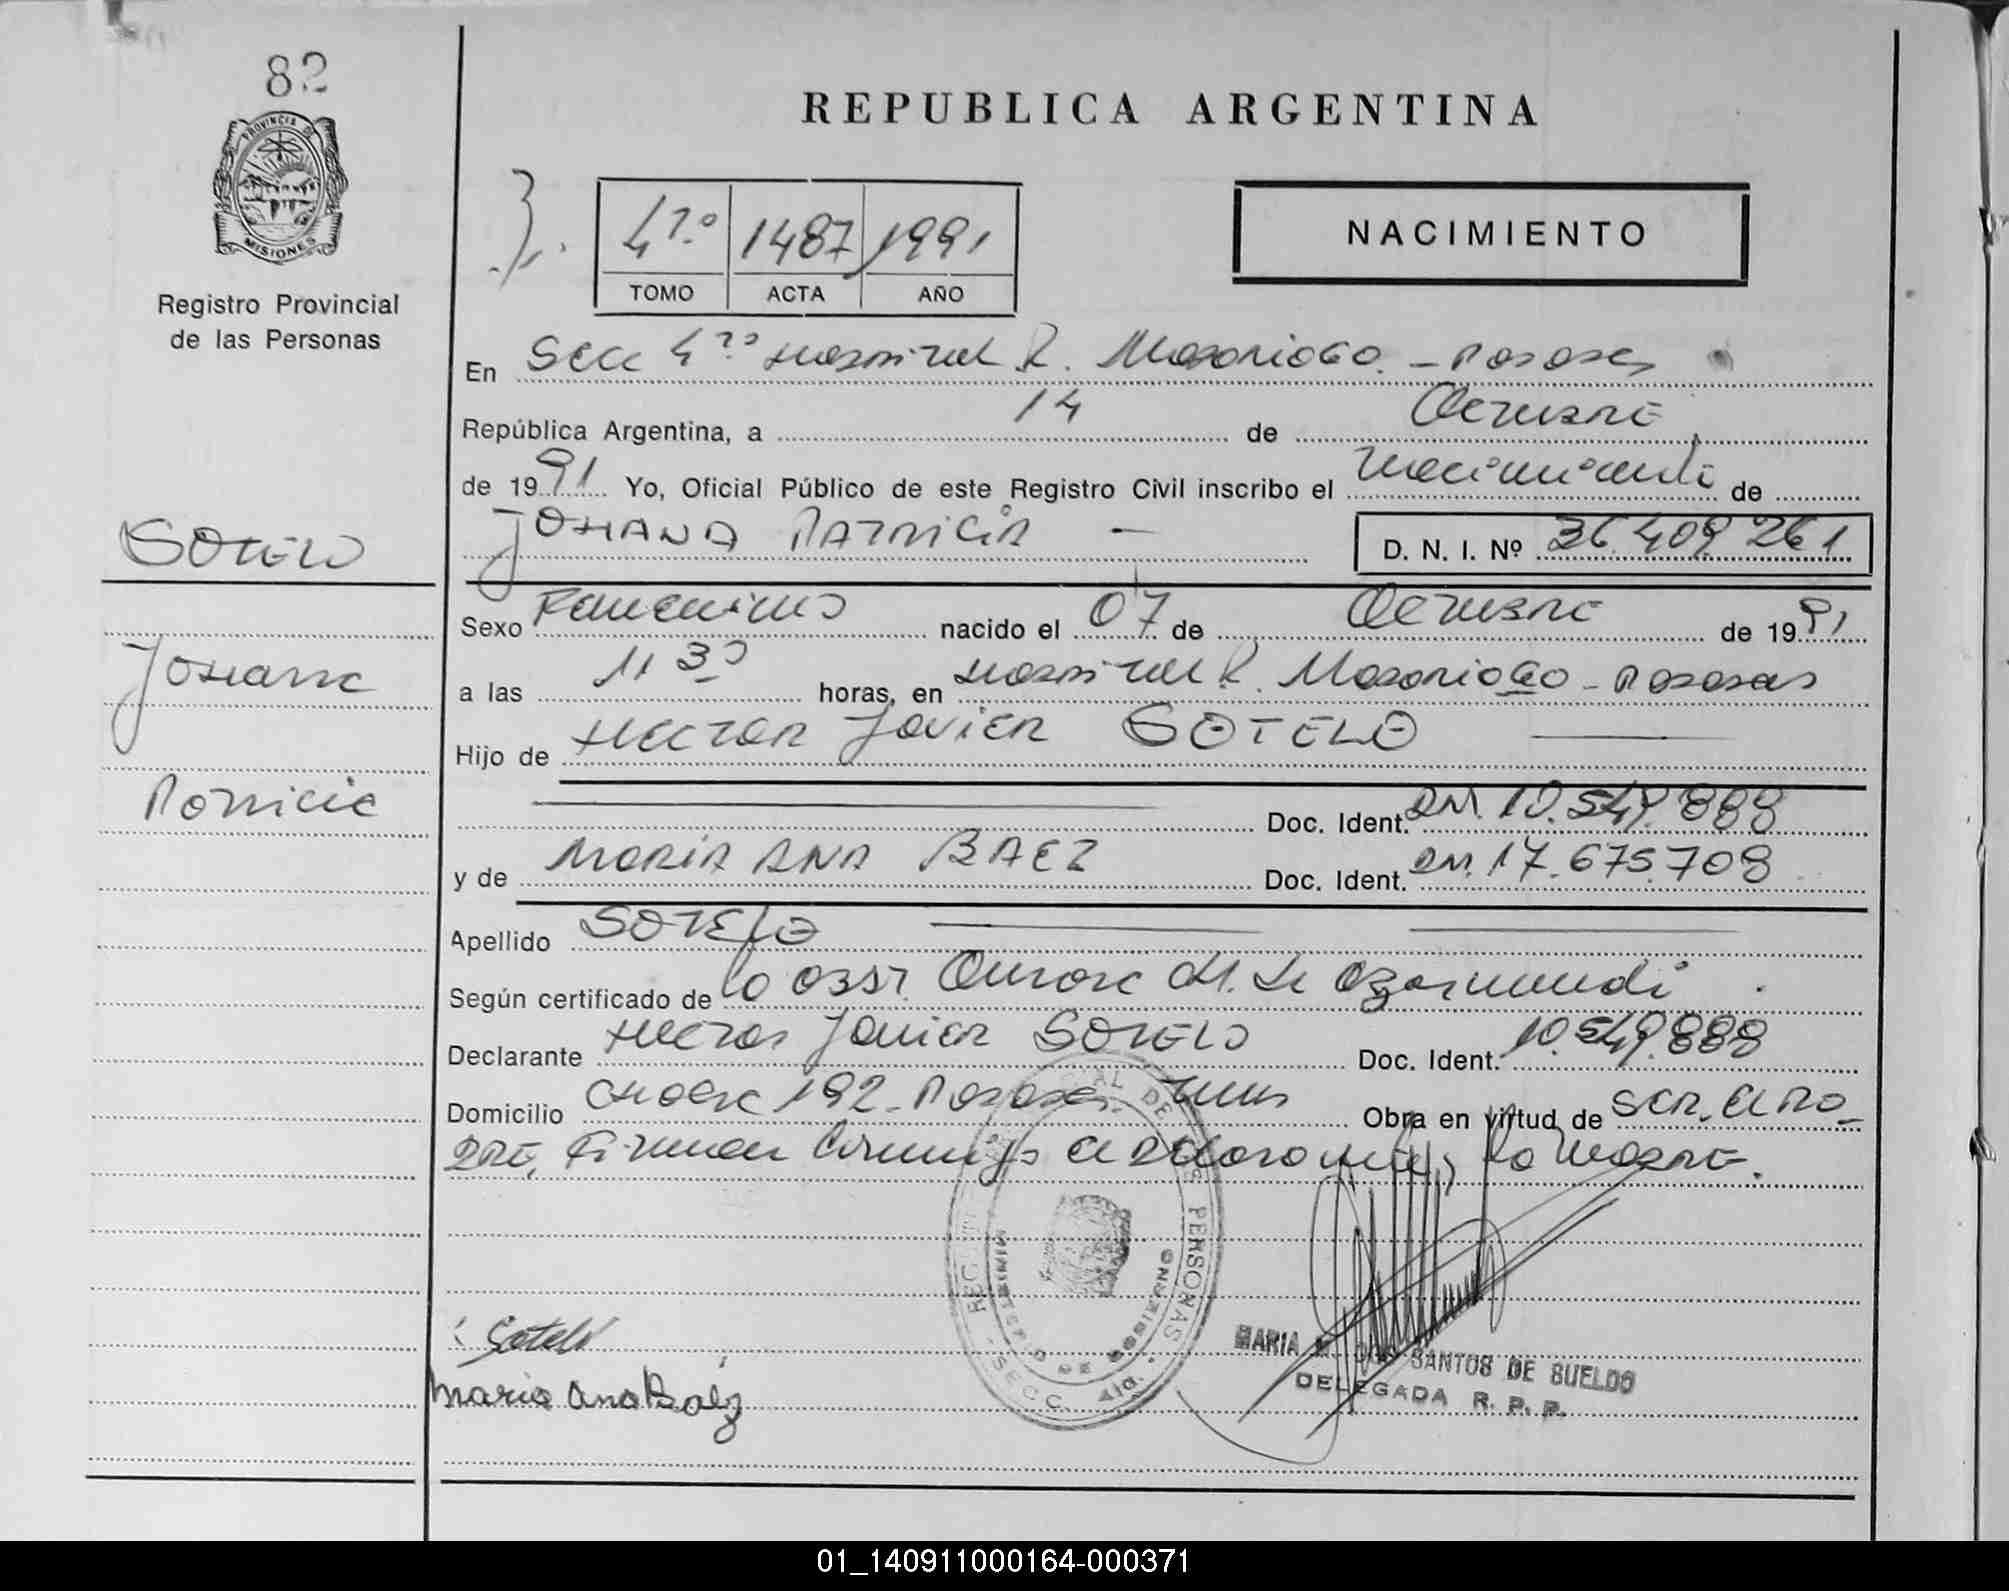 82
PROVINCIA DE
MISIONES
Registro Provincial
de las Personas
REPUBLICA ARGENTINA
4to 1487 1991
TOMO ACTA AÑO
NACIMIENTO
En Secc 4ta Hospital R. Madariaga - Posadas
República Argentina, a 14 de Octubre
de 1991 Yo, Oficial Público de este Registro Civil inscribo el nacimiento de
JOHANA PATRICIA - D. N. I. Nº 36.409.261
SOTELO
Johana
Patricia
Sexo Femenino nacido el 07 de Octubre de 1991
a las 11 30 horas, en Hospital R. Madariaga - Posadas
Hijo de Hector Javier SOTELO
Doc. Ident. DNI. 10.549.888
y de MARIA ANA BAEZ Doc. Ident. DNI. 17.675.708
Apellido SOTELO
Según certificado de la Obst. M. de
Declarante Hector Javier SOTELO Doc. Ident. 10.549.888
Domicilio 192 - Posadas Obra en virtud de ser el pa-
dre, Firman la madre.
Sotelo
Maria Ana Baez
REGISTRO PROVINCIAL DE LAS PERSONAS
MINISTERIO DE GOBIERNO
SECC. 4ta.
MARIA DOS SANTOS DE SUELDO
DELEGADA R. P. P.
01_140911000164-000371